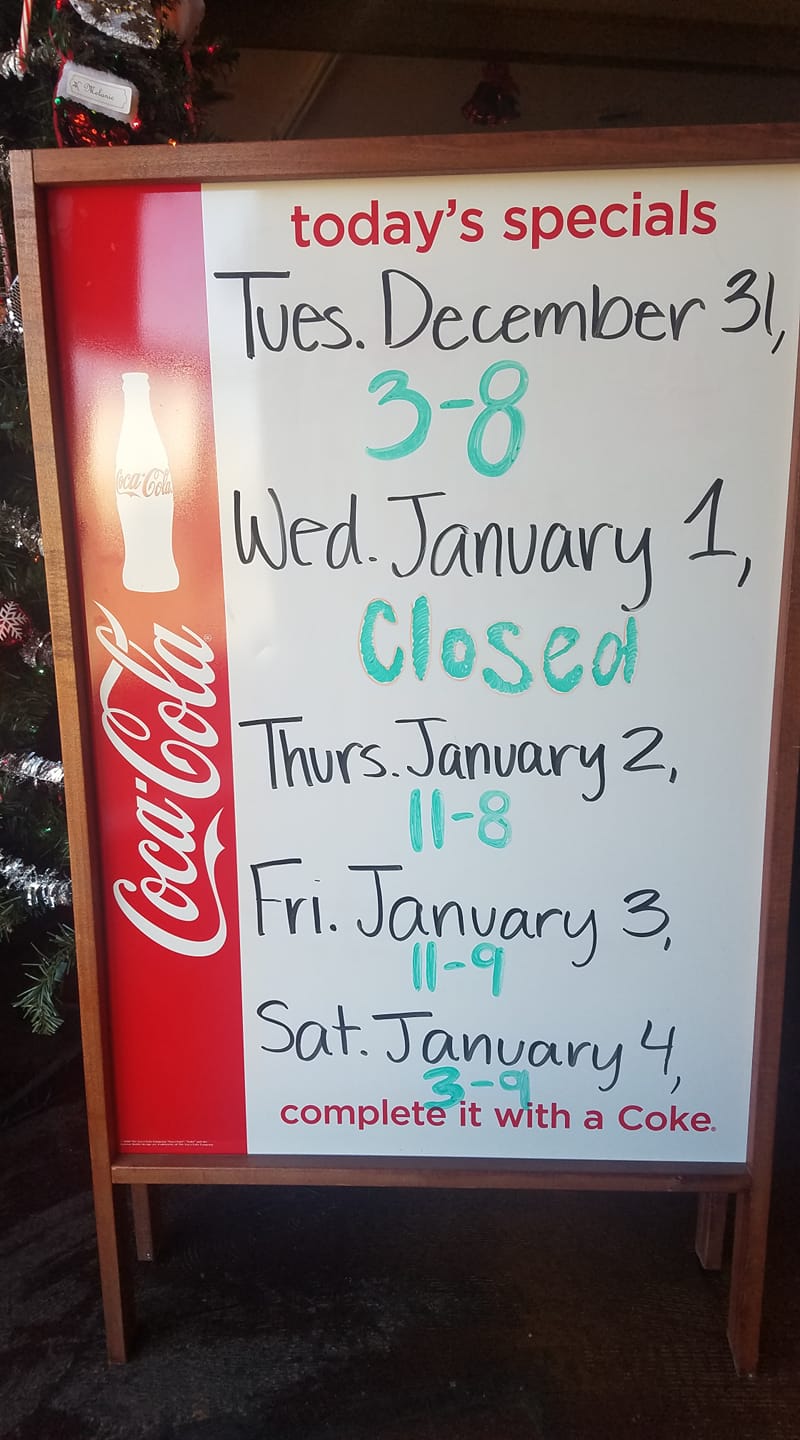 Melanie
today's specials
Tues. December 31,
3-8
Wed. January 1,
Closed
Thurs. January 2,
11-8
Fri. January 3,
11-9
Sat. January 4,
3-9
complete it with a Coke®
Coca-Cola
Coca-Cola®